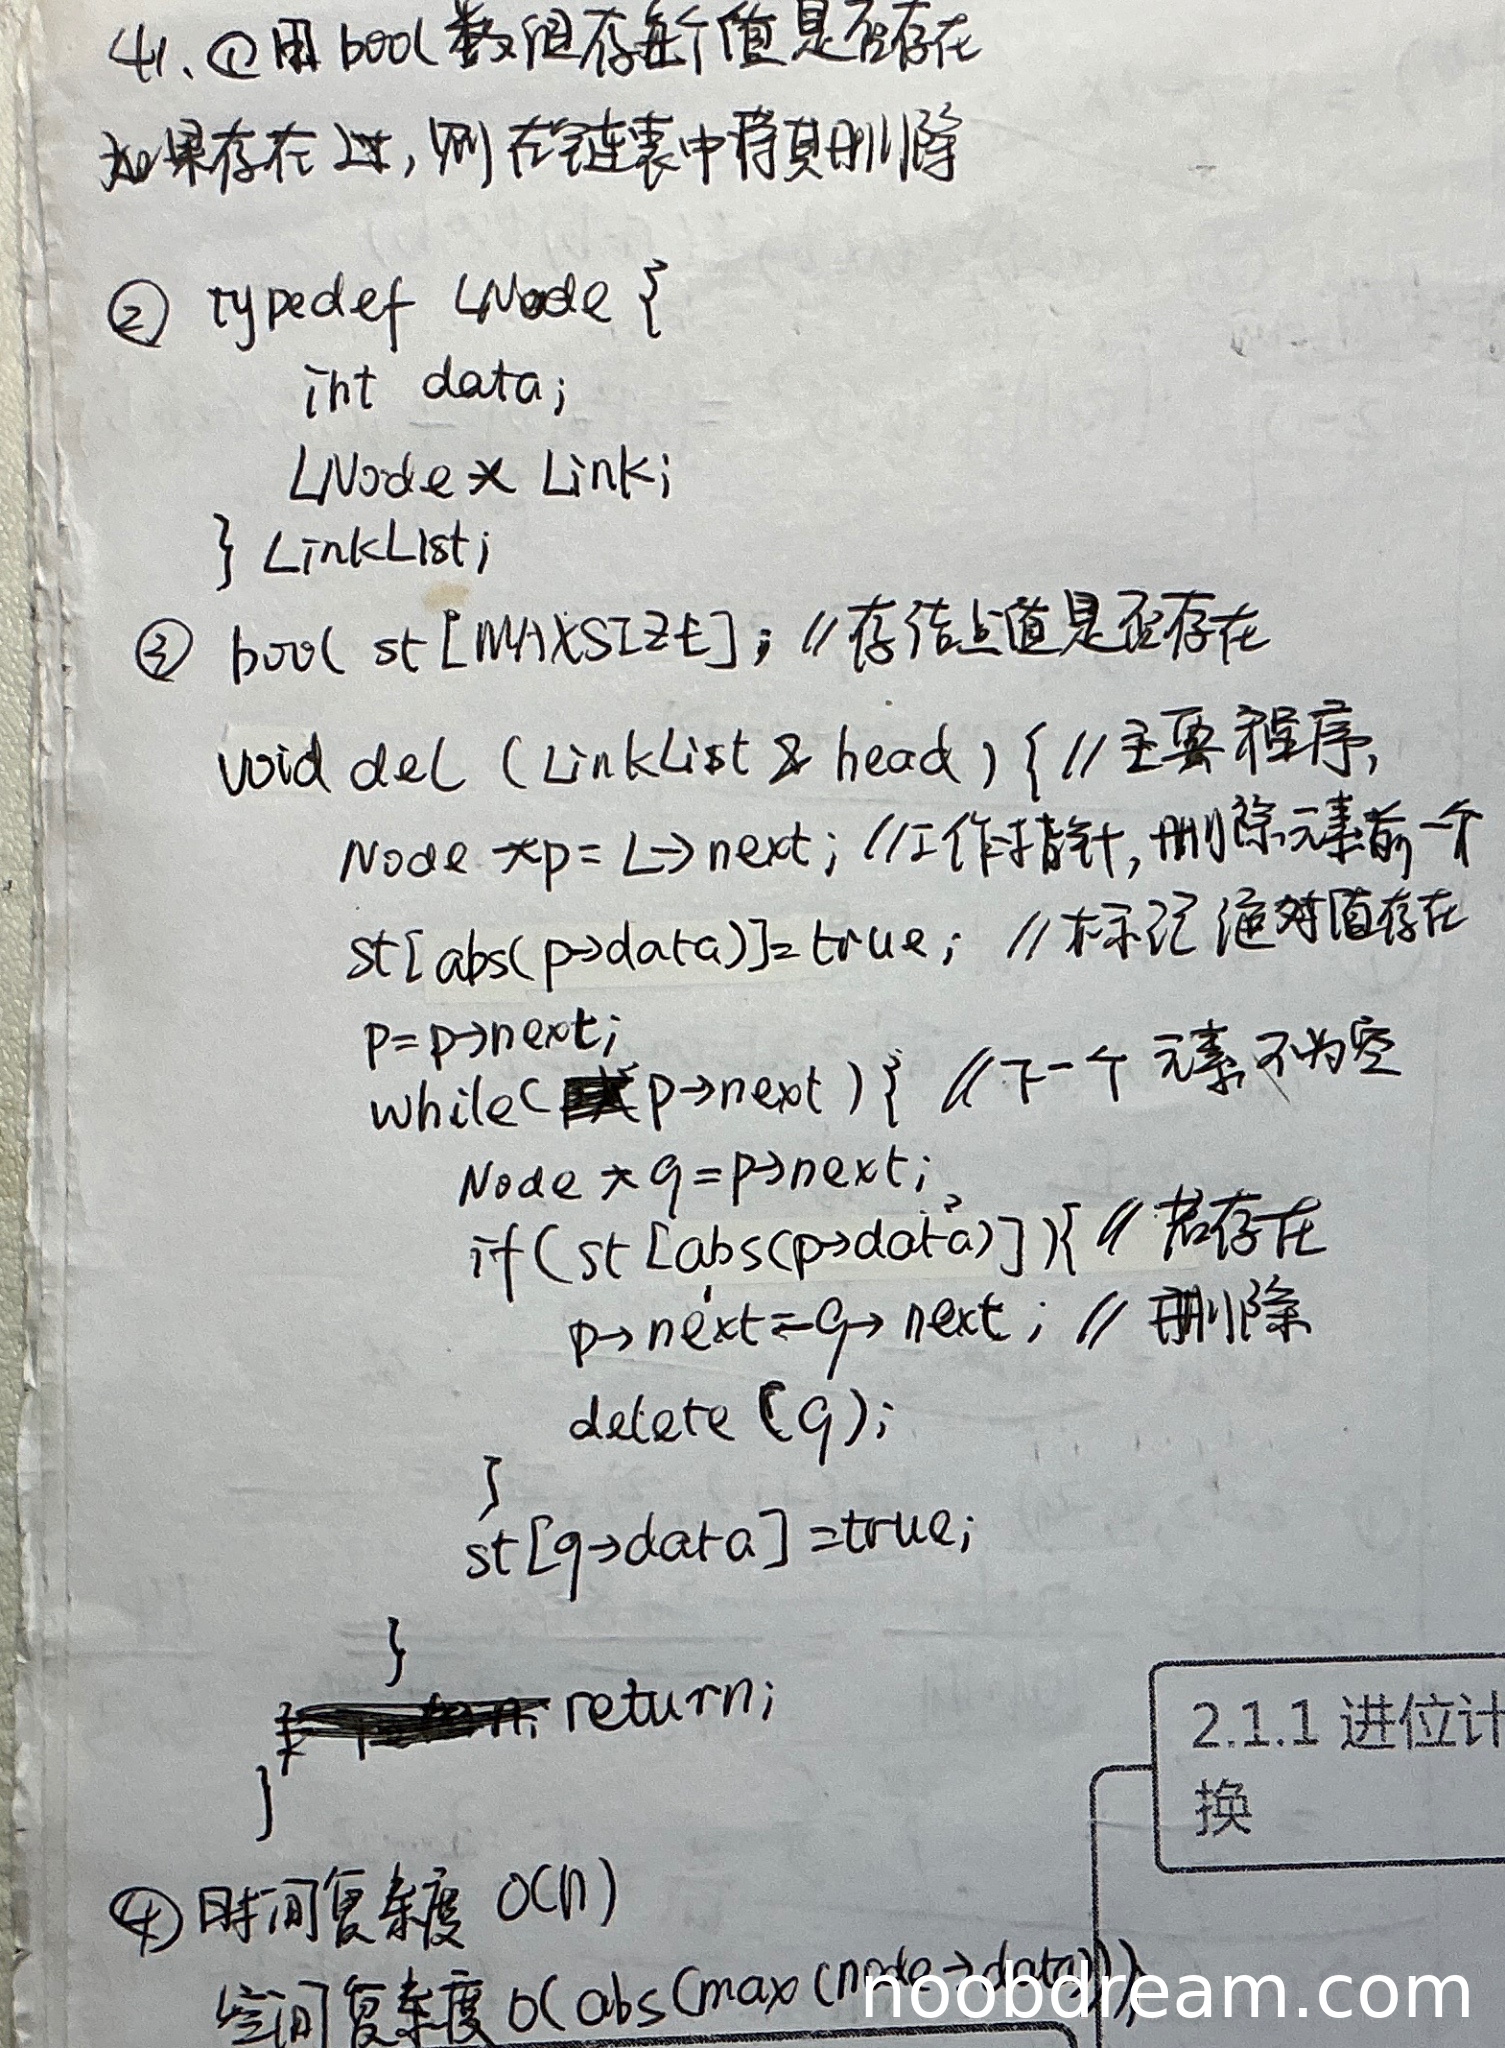 41. ①用bool数组存每个值是否存在
如果存在过,则在链表中将其删除
② typedef LNode {
int data;
LNode* Link;
} LinkList;
③ bool st[MAXSIZE]; //存结点值是否存在
void del (LinkList & head) { //主要程序,
Node *p = L->next; //工作指针,删除元素前一个
st[abs(p->data)]=true; //标记绝对值存在
p=p->next;
while( p->next ) { //下一个元素不为空
Node *q=p->next;
if(st[abs(p->data)]){ //若存在
p->next=q->next; //删除
delete (q);
}
st[q->data]=true;
}
return;
}
④时间复杂度 O(n)
空间复杂度 O(abs(max(node->data)))
2.1.1 进位计
换
noobdream.com